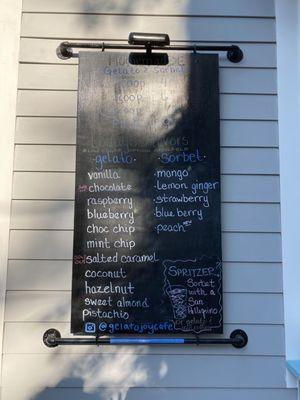 Gelato & Sorbet
gelato
sorbet
vanilla
chocolate
raspberry
blueberry
choc chip
mint chip
salted caramel
coconut
hazelnut
sweet almond
pistachio
mango
lemon ginger
strawberry
blueberry
peach
SPRITZER
Sorbet
with a
San
Pellegrino
or gelato
@gelatojoycafe